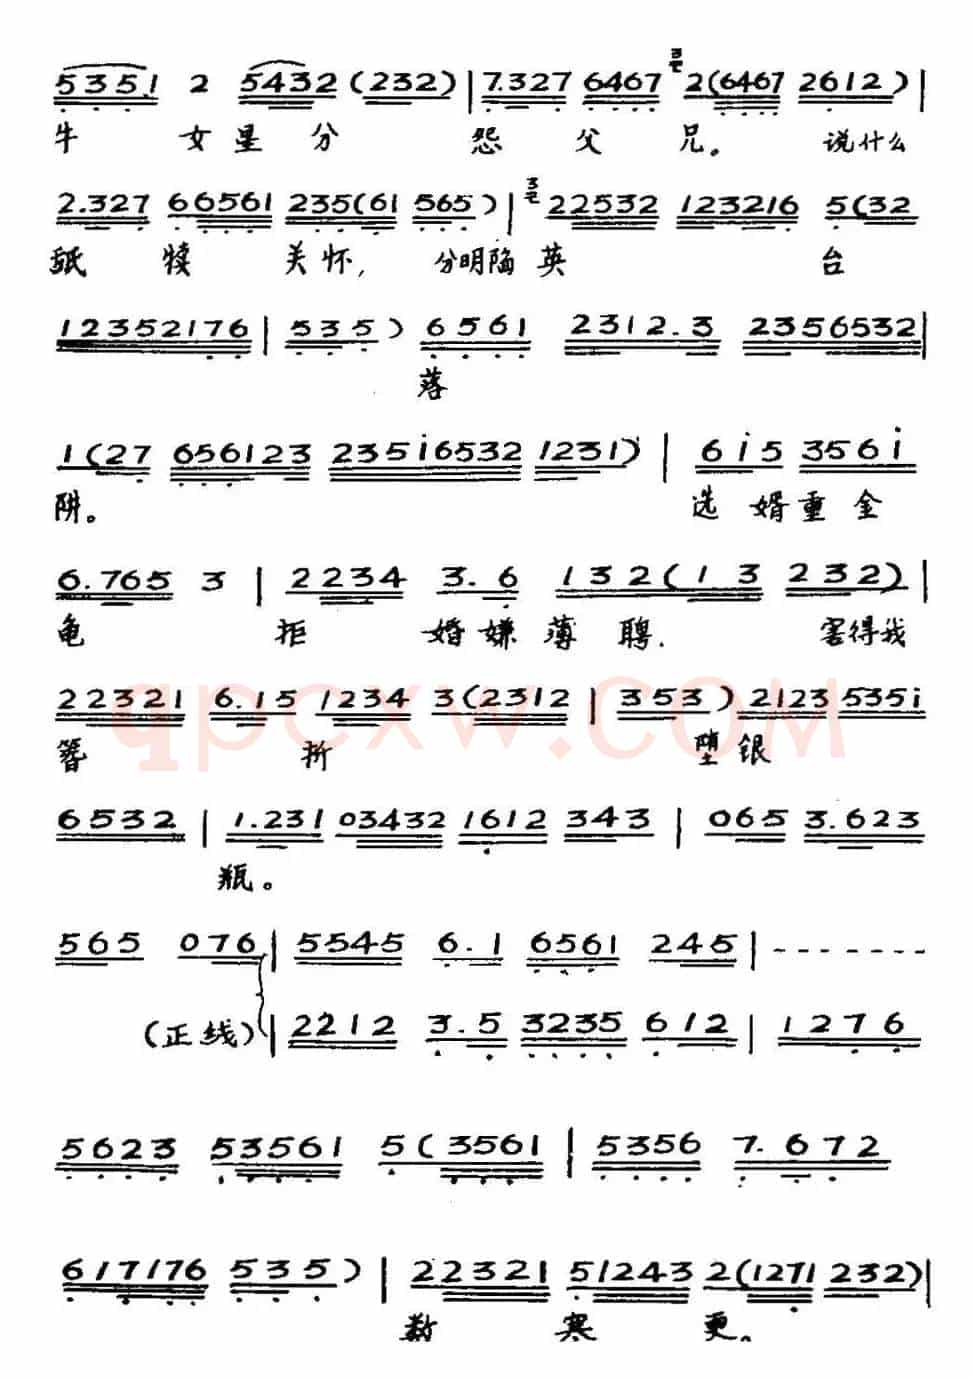 5351 2 5432 (232) | 7.327 6467 2(6467 2612) |
牛 女星分 怨 父 兄。 说什么
2.327 66561 235(61 565) | 22532 123216 5(32
舐 犊 关怀, 分明陷英 台
12352176 | 535) 6561 2312.3 2356532 |
落
1(27 656123 235i6532 1231) | 6i5 356i
阱。 选 婿重金
6.765 3 | 2234 3.6 132(13 232) |
龟 拒 婚嫌薄聘, 害得我
22321 6.15 1234 3(2312 | 353) 2123 535i
簪 折 堕银
6532 | 1.231 03432 1612 343 | 065 3.623
瓶。
565 076 | 5545 6.1 6561 245 | --------
(正线) | 2212 3.5 3235 612 | 1276
5623 53561 5(3561 | 5356 7.672
617176 535) | 22321 51243 2(1271 232) |
数 寒 更。
qpcxw.COM